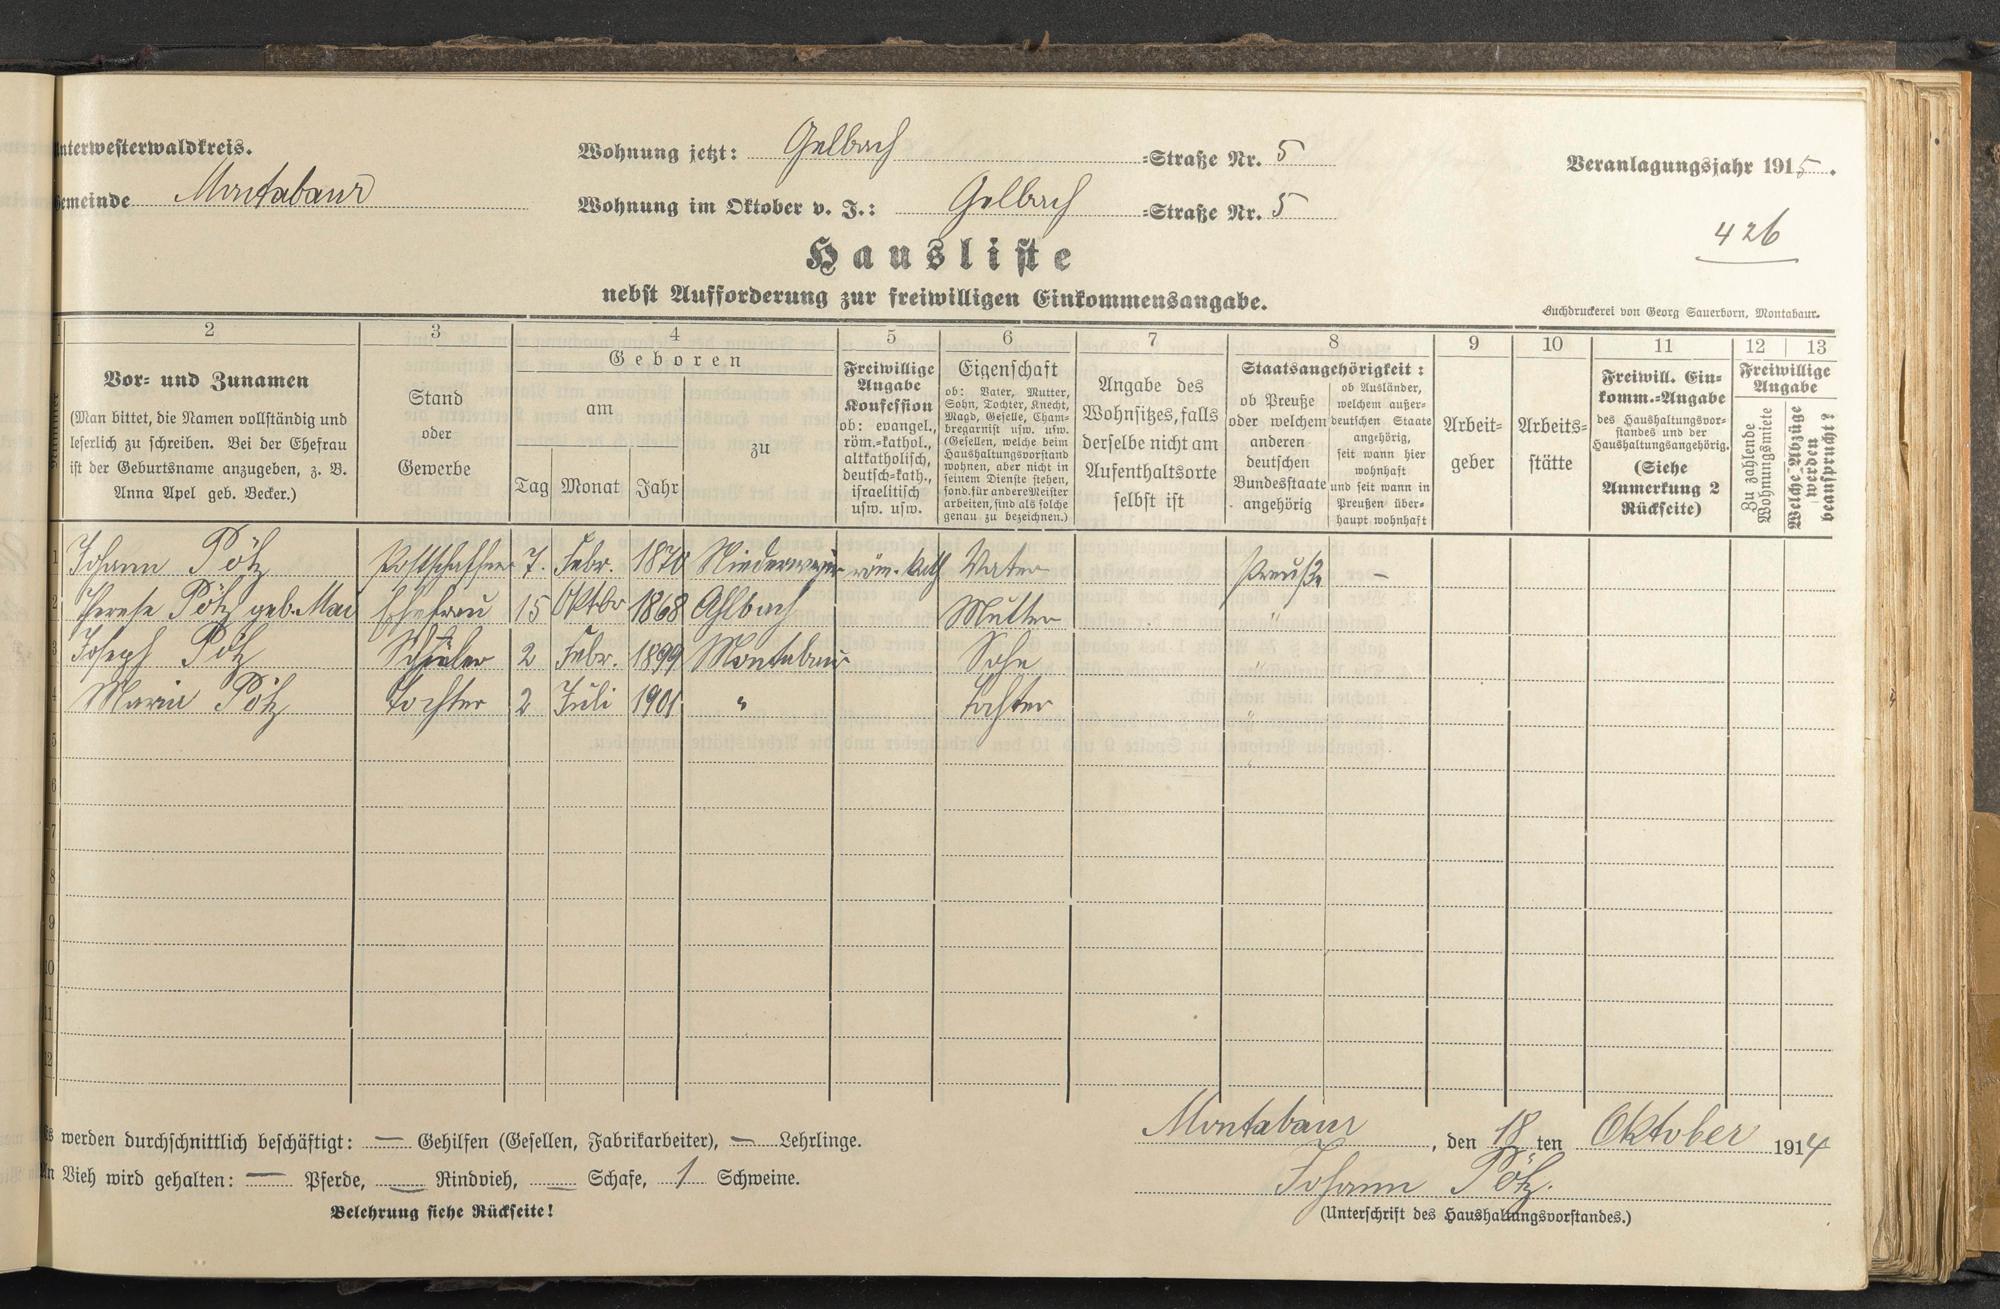 Unterwesterwaldkreis.
Gemeinde Montabaur
Wohnung jetzt: Gelbach -Straße Nr. 5
Wohnung im Oktober v. J.: Gelbach -Straße Nr. 5
Veranlagungsjahr 1915.
426
Hausliste
nebst Aufforderung zur freiwilligen Einkommensangabe.
Buchdruckerei von Georg Sauerborn, Montabaur.
2 3 4 5 6 7 8 9 10 11 12 13
Vor- und Zunamen
(Man bittet, die Namen vollständig und
leserlich zu schreiben. Bei der Ehefrau
ist der Geburtsname anzugeben, z. B.
Anna Apel geb. Becker.)
Stand
oder
Gewerbe
Geboren
am
Tag Monat Jahr
zu
Freiwillige
Angabe
Konfession
ob: evangel.,
röm.-kathol.,
altkatholisch,
deutsch-kath.,
israelitisch
usw. usw.
Eigenschaft
ob: Vater, Mutter,
Sohn, Tochter, Knecht,
Magd, Geselle, Cham-
bregarnist usw. usw.
(Gesellen, welche beim
Haushaltungsvorstand
wohnen, aber nicht in
seinem Dienste stehen,
sond. für andere Meister
arbeiten, sind als solche
genau zu bezeichnen.)
Angabe des
Wohnsitzes, falls
derselbe nicht am
Aufenthaltsorte
selbst ist
Staatsangehörigkeit:
ob Preuße
oder welchem
anderen
deutschen
Bundesstaate
angehörig
ob Ausländer,
welchem außer-
deutschen Staate
angehörig,
seit wann hier
wohnhaft
und seit wann in
Preußen über-
haupt wohnhaft
Arbeit-
geber
Arbeits-
stätte
Freiwill. Ein-
komm.-Angabe
des Haushaltungsvor-
standes und der
Haushaltungsangehörig.
(Siehe
Anmerkung 2
Rückseite)
Freiwillige
Angabe
Zu zahlende
Wohnungsmiete
Welche Abzüge
werden
beansprucht?
1 Johann Pötz Postschaffner 7. Febr. 1870 röm. kath Vater Preuße –
2 Therese Pötz geb. Mai Ehefrau 15 Oktbr 1868 Ahlbach Mutter "
3 Joseph Pötz Schüler 2 Febr. 1899 Montabaur Sohn "
4 Maria Pötz Tochter 2 Juli 1901 " Tochter "
5
6
7
8
9
10
11
12
Es werden durchschnittlich beschäftigt: — Gehilfen (Gesellen, Fabrikarbeiter), — Lehrlinge.
An Vieh wird gehalten: — Pferde, — Rindvieh, — Schafe, 1 Schweine.
Belehrung siehe Rückseite!
Montabaur, den 18 ten Oktober 1914
Johann Pötz.
(Unterschrift des Haushaltungsvorstandes.)